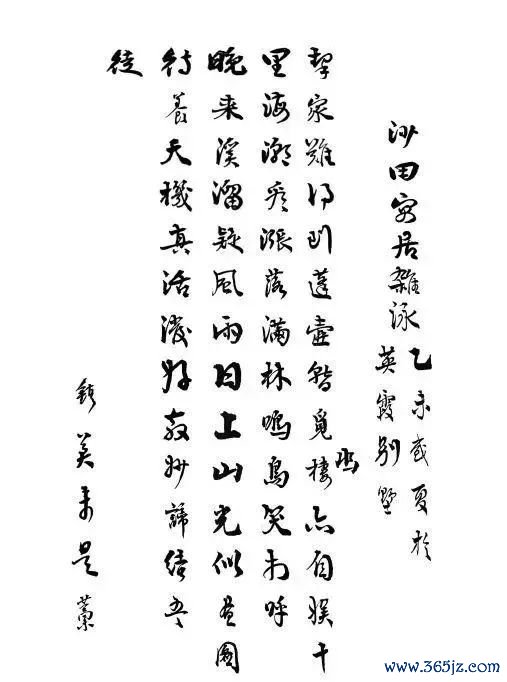 沙田寓居雜詠
乙未歲夏於
英霞別墅
挈家難得到蓬壺暫覓幽棲亦自娛十
里海潮漲落滿林鳴鳥笑相呼
晚來溪溜疑風雨日上山光似畫圖
待養天機真活潑好教妙諦結吾
徒
美是藁
www.365jz.com